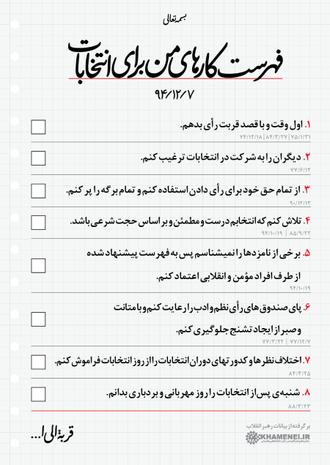 بسمه‌تعالی
فهرست کارهای من برای انتخابات
۹۴/۱۲/۷
۱. اول وقت و با قصد قربت رأی بدهم.
۲. دیگران را به شرکت در انتخابات ترغیب کنم.
۳. از تمام حق خود برای رأی دادن استفاده کنم و تمام برگه را پر کنم.
۴. تلاش کنم که انتخابم درست و مطمئن و بر اساس حجت شرعی باشد.
۵. برخی از نامزدها را نمیشناسم پس به فهرست پیشنهاد شده
از طرف افراد مؤمن و انقلابی اعتماد کنم.
۶. پای صندوق‌های رأی نظم و ادب را رعایت کنم و با متانت
و صبر از ایجاد تشنج جلوگیری کنم.
۷. اختلاف نظرها و کدورتهای دوران انتخابات را از روز انتخابات فراموش کنم.
۸. شنبه‌ی پس از انتخابات را روز مهربانی و بردباری بدانم.
برگرفته از بیانات رهبر انقلاب
KHAMENEI.IR
قربةالی ا...